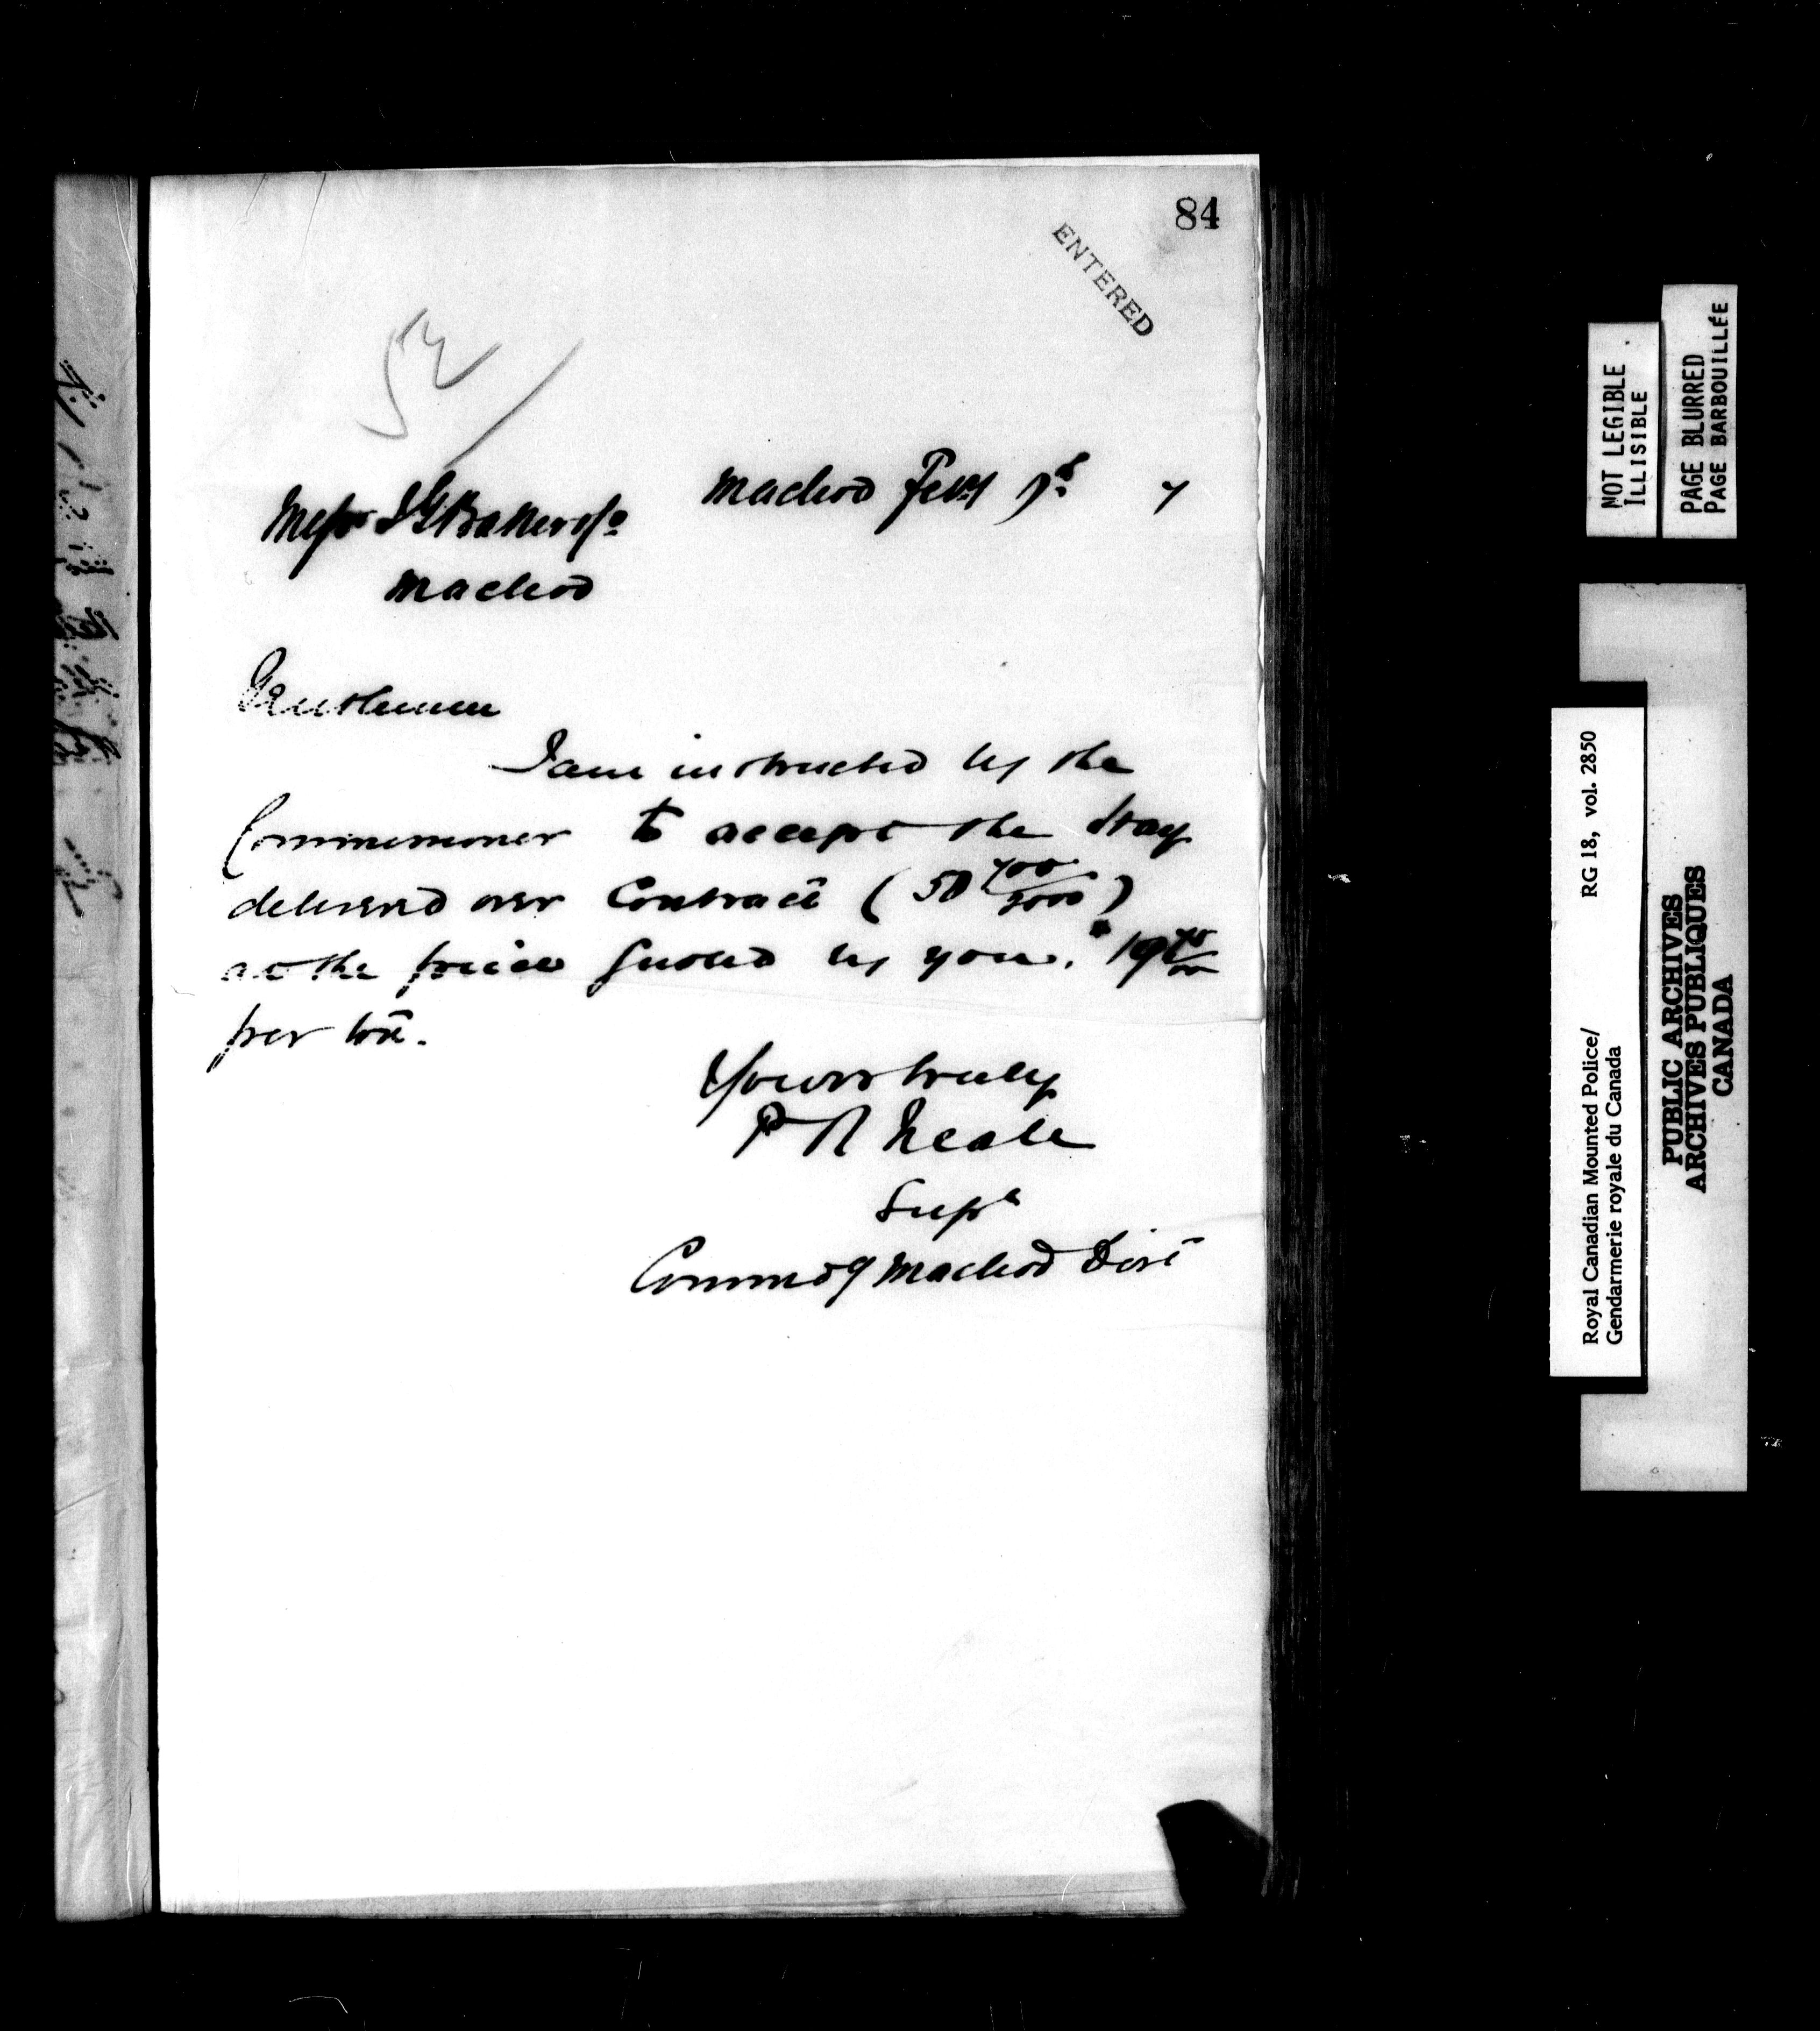 84
ENTERED
52/
Macleod Feby 7
Messrs I G Baker & Co
Macleod
Gentlemen
I am instructed by the
Commissioner to accept the Hay
delivered over Contract (50 700/2000)
at the price quoted by you.
per ton.
Yours truly
P R Neale
Supt
Commdg Macleod Dist
NOT LEGIBLE
ILLISIBLE
PAGE BLURRED
PAGE BARBOUILLÉE
Royal Canadian Mounted Police/ RG 18, vol. 2850
Gendarmerie royale du Canada
PUBLIC ARCHIVES
ARCHIVES PUBLIQUES
CANADA